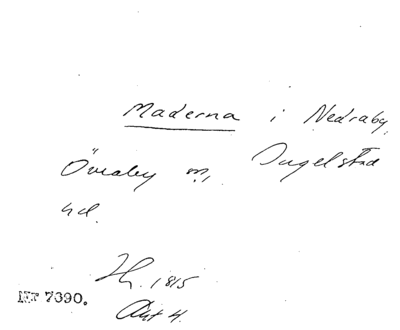 Maderna i Nedraby,
Öveaby m, Ingelstad
hd.
1815
Akt 4.
Nr 7390.